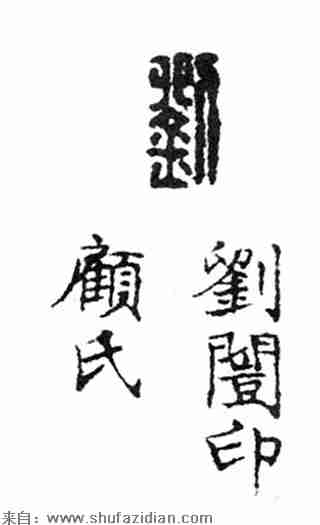 劉
劉闓印
顧氏
来自：www.shufazidian.com